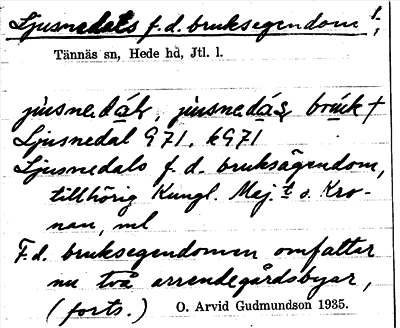 Ljusnedals f.d. bruksegendom !;
Tännäs sn, Hede hd, Jtl. l.
jusnedáls, jusnedás brúk +
Ljusnedal 971. k971
Ljusnedals f. d. bruksägendom,
tillhörig Kungl. Maj:t o. Kro-
nan, ml
F.d. bruksegendomen omfattar
nu två arrendegårdsbyar,
(forts.) O. Arvid Gudmundson 1935.